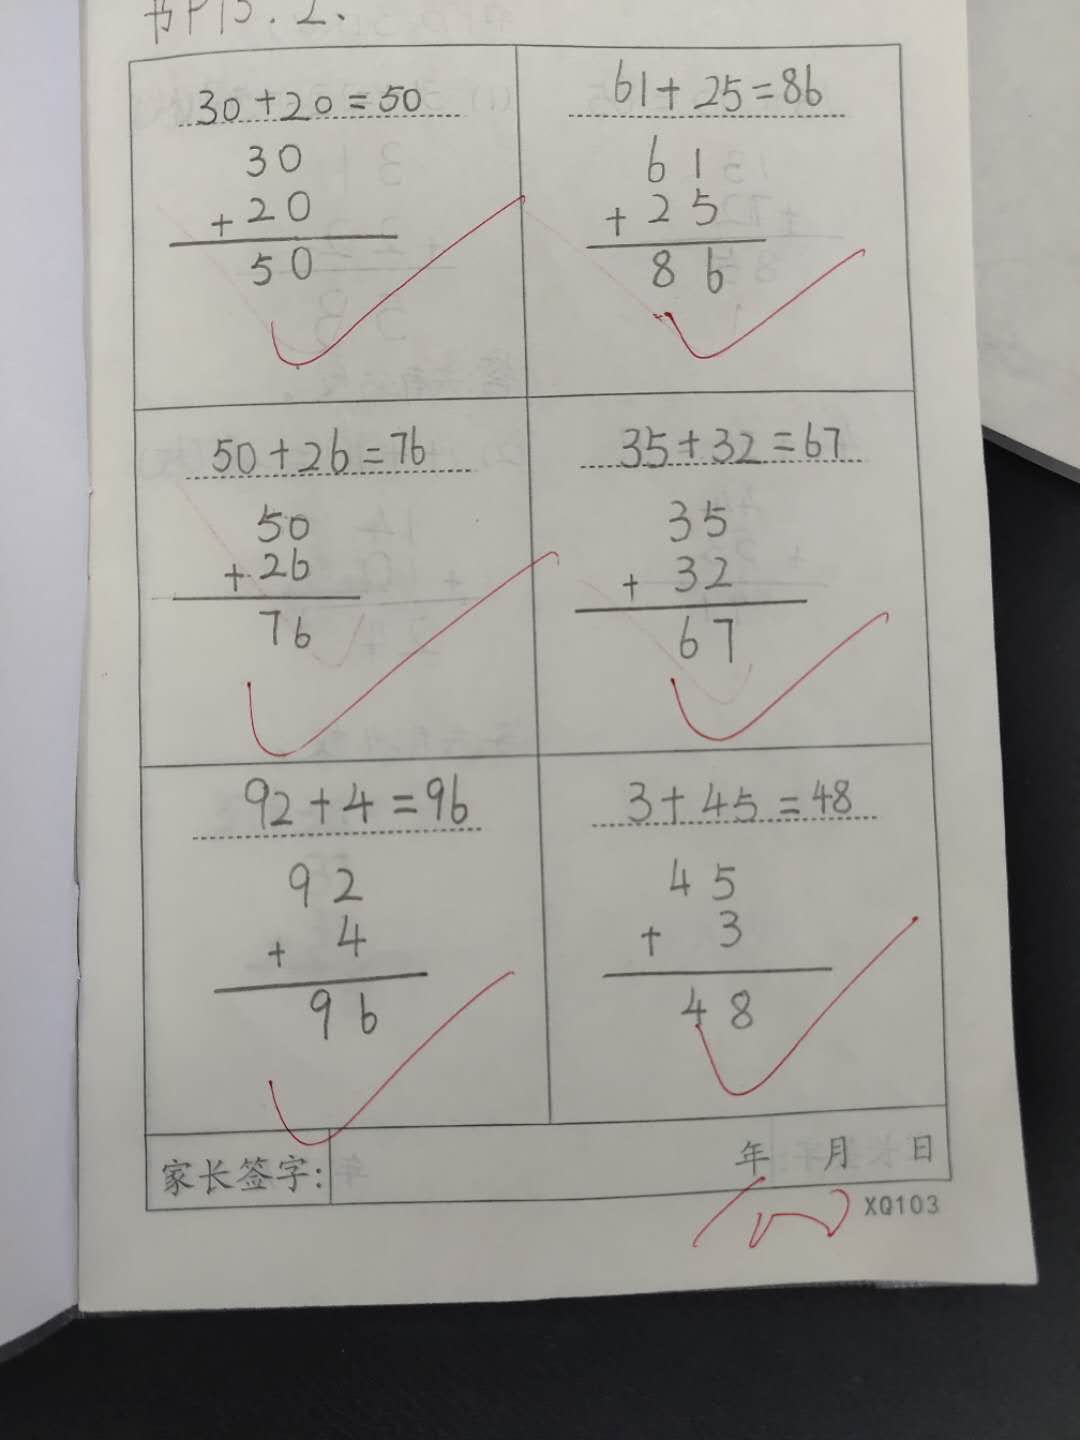 书P13.2、
30+20=50
30
+20
50
61+25=86
61
+25
86
50+26=76
50
+26
76
35+32=67
35
+32
67
92+4=96
92
+ 4
96
3+45=48
45
+ 3
48
家长签字: 年 月 日
XQ103